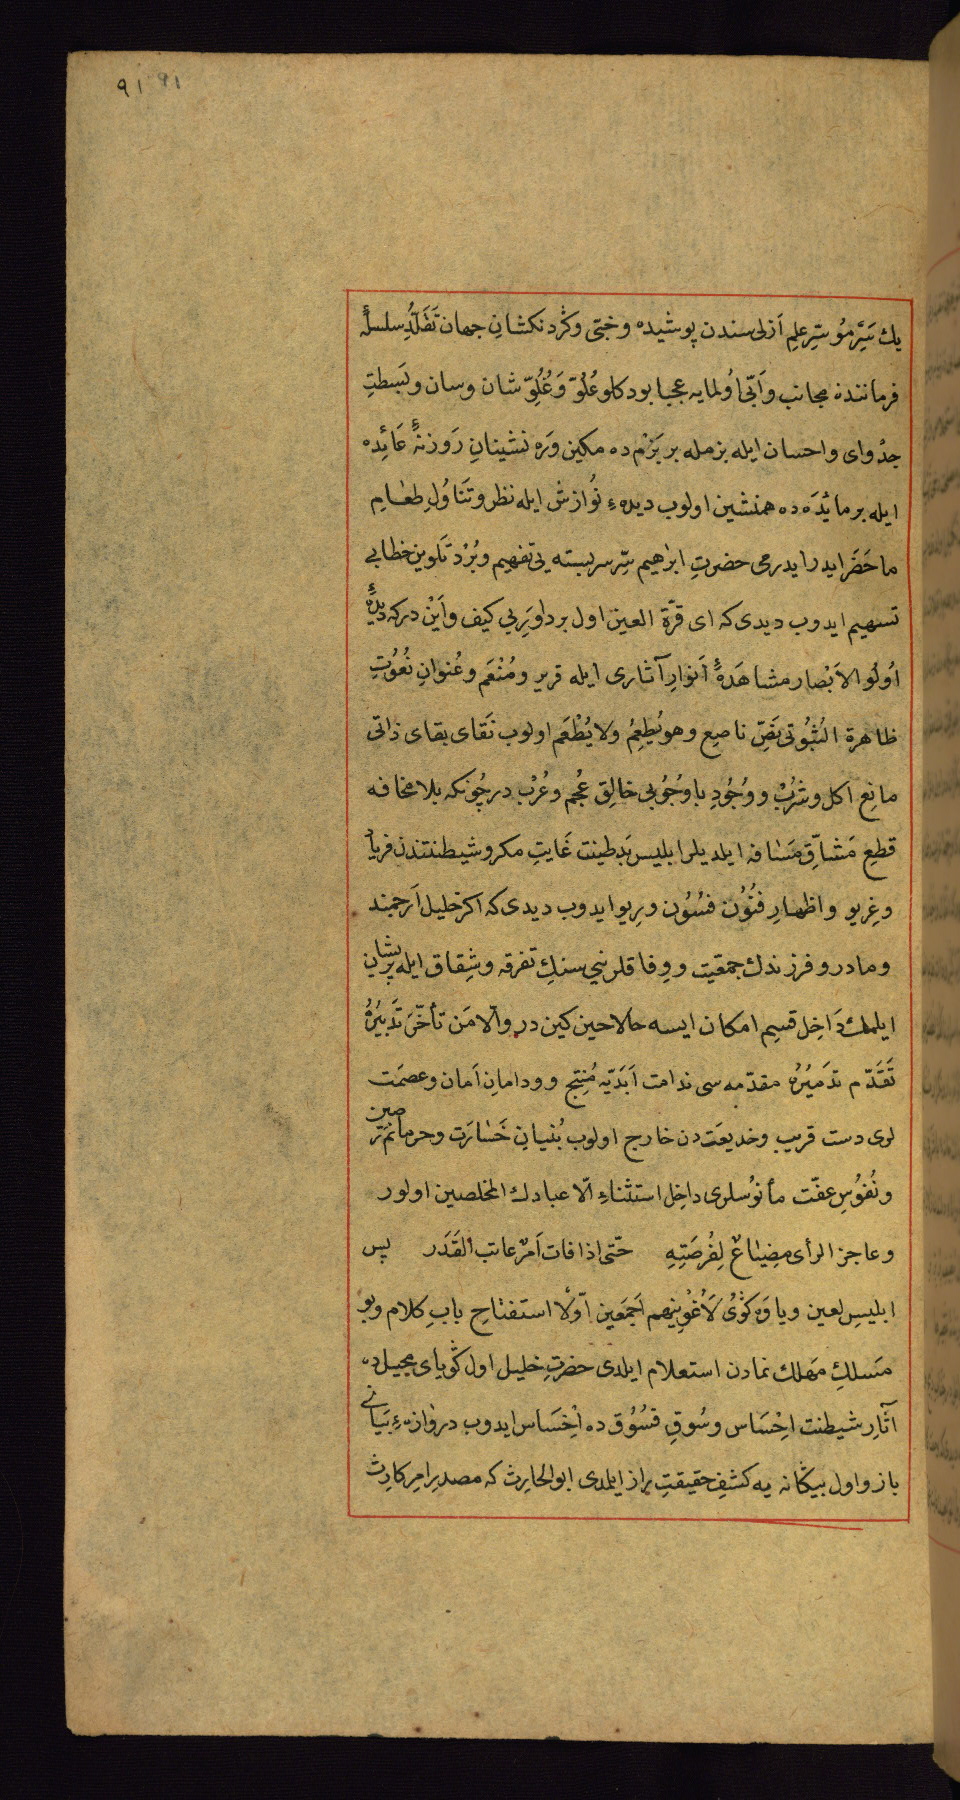 ٩١ ٩١
يك سَرِ مُو سِرِّ علمِ اَزلى سندن پوشيده و ختى وكردنكشانِ جهان تَقَلُّدِ سلسلۀ
فرماننده مجانب و اَبّى اُولمايه عجبا بود كلو عُلُوّ وَغُلُوِّ شان وسان وبَسطتِ
جدْواى واحسان ايله بزمله بر بَزْم ده مكين وَره نشينانِ رَوزنۀ عَائِده
ايله بر مائدَه ده همنشين اولوب ديدهءِ نُوازش ايله نظر وتَنَاوُلِ طعام
ما حَضَر ايدر ايدرمى حضرتِ ابرٰهيم سِرِّ سربسته يى تفهيم وبُرْد تَلوين خطابى
تسهيم ايدوب ديدى كه اى قرّة العين اول برداوَرِ بى كيف واَيْن دركه ديدۀ
اُولُو الاَبْصار مشاهَدۀ اَنوارِ آثارى ايله قرير ومُنْعَم وعُنوانِ نُعُوتِ
ظاهرة الثُبُوتى نَصِّ ناصِع وهو يُطعِمُ ولا يُطْعَم اولوب نَقاى بقاى ذاتى
مانِع اكل وشُرْبْ ووُجُودِ باوجُوبى خالِق عُجم وعُرْب در چُونكه بلا مخافه
قطعِ مَشاقِّ مَسَافه ايلديلر ابليس بَدطينت غَايتِ مكر وشيطنتندن فرياد
وغِريو واظهارِ فنُوُن فسُوُن وريو ايدوب ديدى كه اكر خليل اَرجمند
ومادر وفرزندك جمعيت ووِفاقلرينى سنكِ تفرقه وشِقاق ايله پريشان
ايلمك دَاخِل قسيم امكان ايسه حالا حين كين در والّا مَن تأخّرَ تَدْبيرُهُ
تَقَدّم تدميرُهُ مقدّمه سى ندامت اَبَدَيّه مُنِتج ودامانِ اَمان وعصمت
لرى دست قريب وخديعَت دن خارج اولوب بُنيانِ خَسَارَت وحرمانم ترصين
ونُفوُسِ عفّت مأنوُسلرى داخِل استثناءِ الّا عبادك المخلصين اولور
وعاجز الرأى مِضيَاعٌ لِفُرصَتِهِ حتّى اذا فات اَمرٌ عاتب القَدَر پس
ابليسِ لعين وياوَه كوْىُ لَاُغْوِينهم اَجمَعين اوّلا استفتاحِ بابِ كلام وبو
مَسلكِ مَهلك نمادن استعلام ايلدى حضرتِ خليل اول كوياى مجيل ده
آثارِ شيطنت اِحْسَاس وسُوقِ فسُوُق ده اَخِسَاس ايدوب دروازهءِ بَيانى
باز واول بيكانه يه كشفِ حقيقتِ راز ايلدى ابو الحارِث كه مصدرِ امرِ كارِث